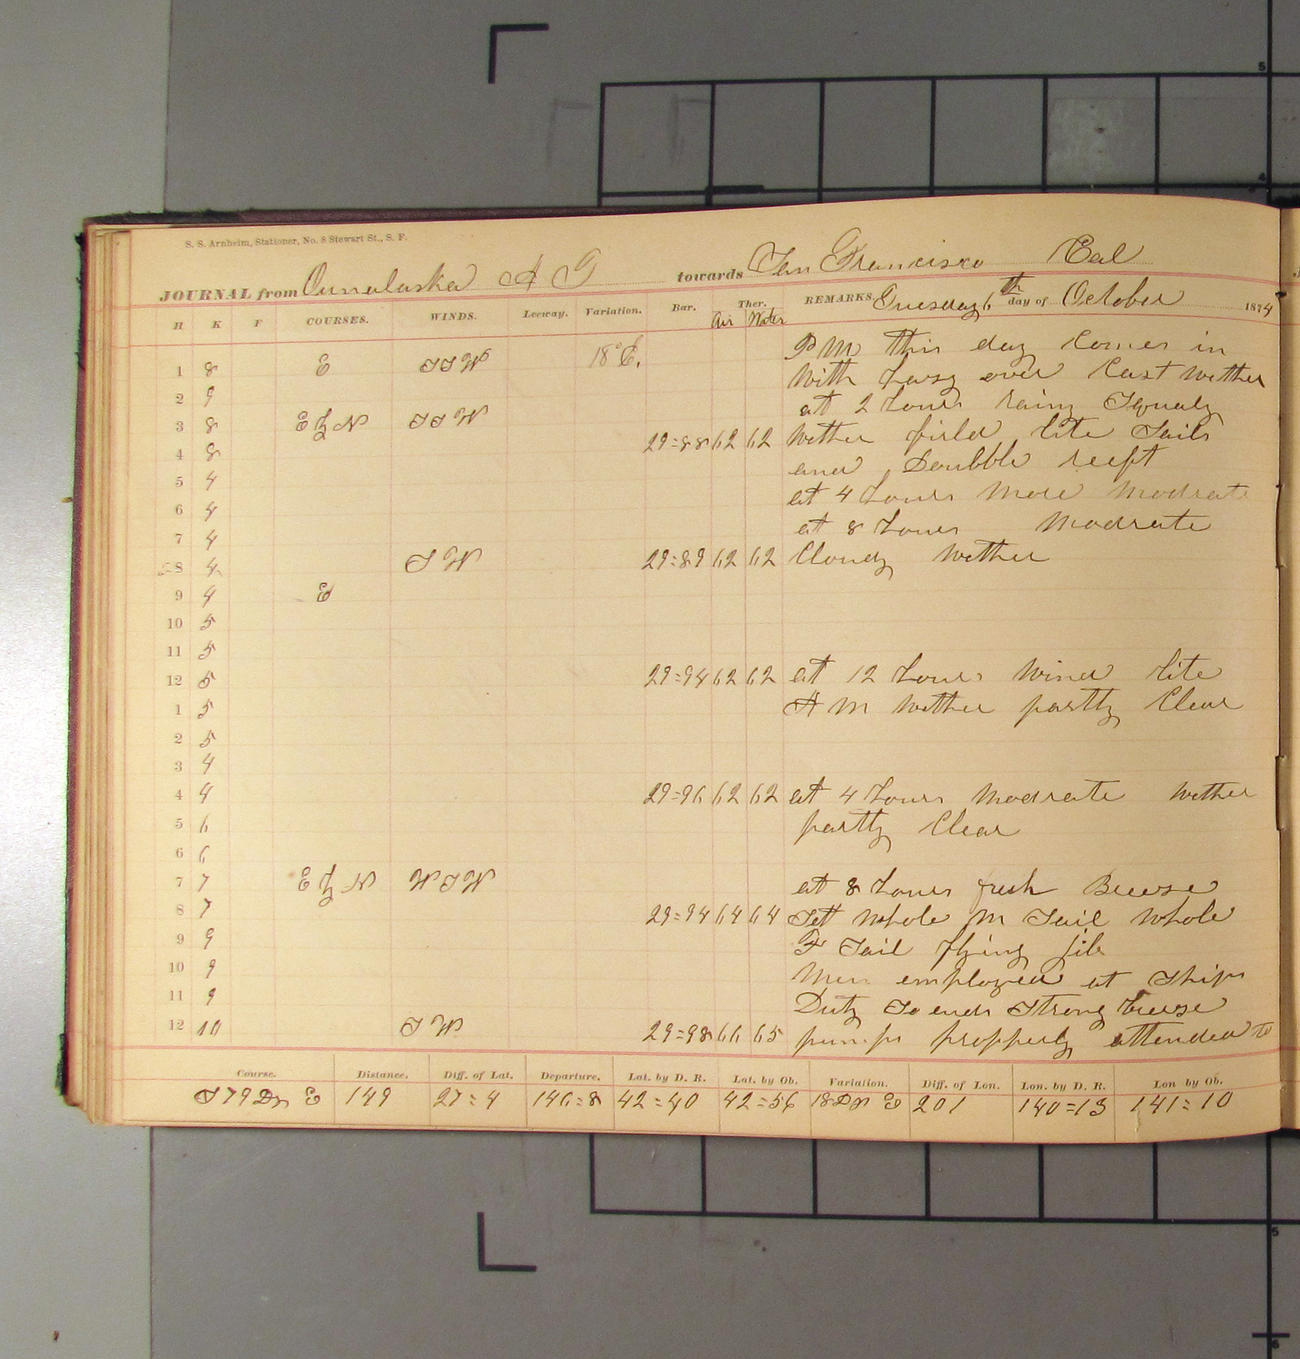 S. S. Arnheim, Stationer, No. 8 Stewart St., S. F.
JOURNAL from Ounalaska A T towards San Francisco Cal
H K F COURSES. WINDS. Leeway. Variation. Bar. Ther. Air Water REMARKS Tuesday 6th day of October 1874
P M this day Comes in
1 8 E SSW 18° E. With hasy over Cast wether
2 9 at 2 hours rainy Squaly
3 8 E by N SSW
4 8 29=88 62 62 Wether firld lite Sails
5 4 and Doubble reeft
6 4 at 4 hours More Modrate
7 4 at 8 hours Modrate
8 4 SW 29=89 62 62 Cloudy Wether
9 4 E
10 5
11 5
12 5 29=94 62 62 at 12 hours Wind lite
1 5 A M Wether partly Clear
2 5
3 4
4 4 29=96 62 62 at 4 hours Modrate Wether
5 6 partly Clear
6 6
7 7 E by N WSW at 8 hours fresh Breese
8 7 29=94 64 64 Sett Whole M Sail Whole
9 9 F Sail flying jib
10 9 Men employed at Ships
11 9 Duty So ends Strong breese
12 10 SW 29=98 66 65 pumps propperly attended to
Course. Distance. Diff. of Lat. Departure. Lat. by D. R. Lat. by Ob. Variation. Diff. of Lon. Lon. by D. R. Lon by Ob.
S 79 Dg E 149 27=4 146=8 42=40 42=56 18 Dg E 201 140=13 141=10